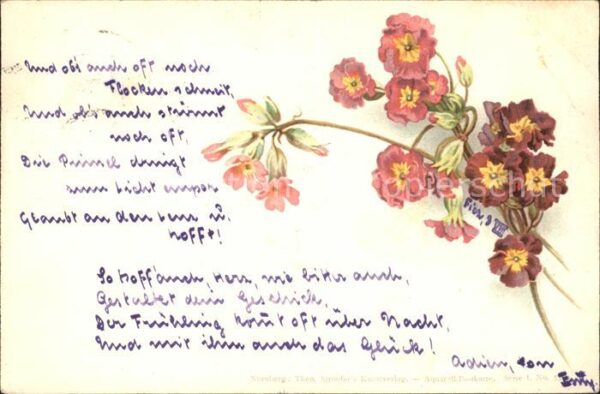 Und ob's auch oft noch
Flocken schneit,
Und ob's auch stürmt
noch oft,
Die Primel dringt
zum Licht empor
Glaubt an den Lenz u.
hofft!
So hoff auch, Herz, wie bitter auch,
Gestaltet dein Geschick,
Der Frühling kom̄t oft über Nacht,
Und mit ihm auch das Glück!
Adieu, von
Emy.
Nürnberg: Theo. Stroefer's Kunstverlag. — Aquarell-Postkarte. Serie I. No.